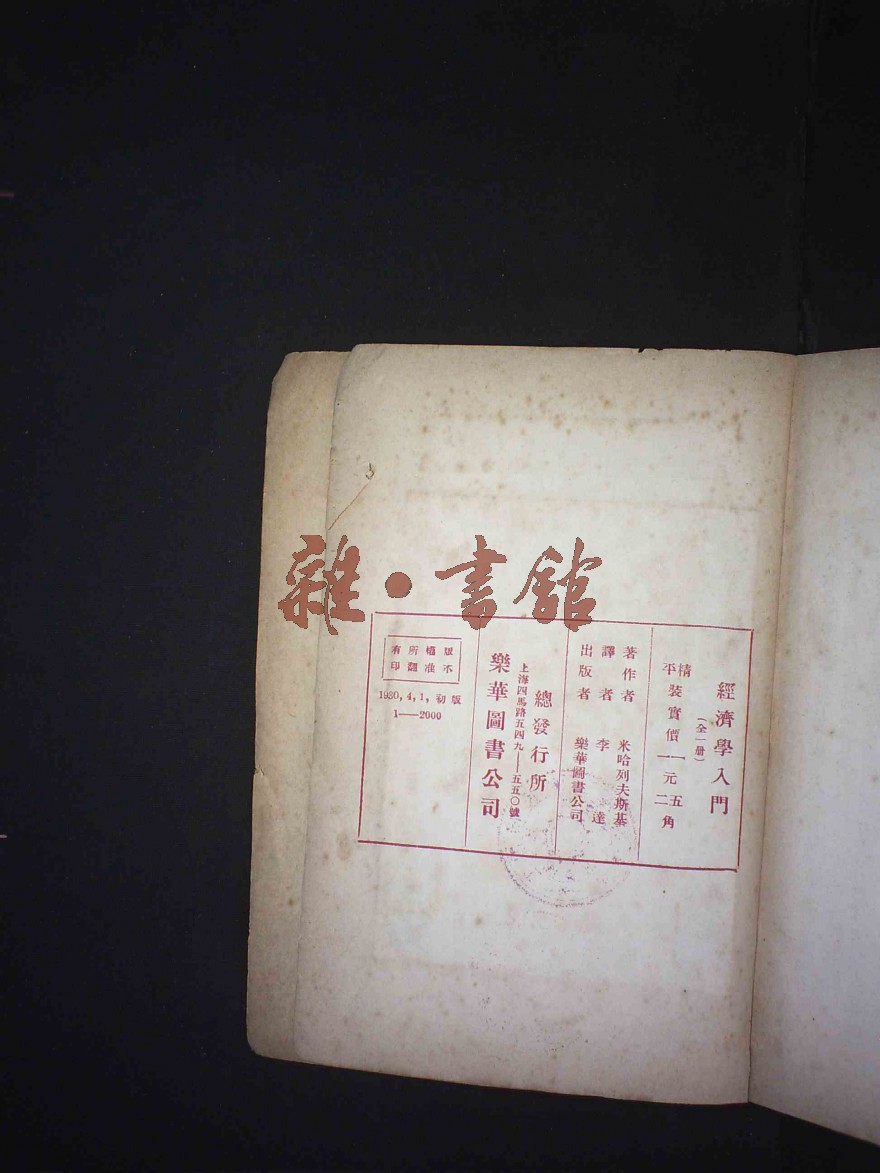 雜·書館
經濟學入門
(全一册)
精裝實價一元五角
平裝實價一元二角
著作者 米哈列夫斯基
譯者 李達
出版者 樂華圖書公司
總發行所
上海四馬路五四九——五五〇號
樂華圖書公司
版權所有
不准翻印
1930,4,1,初版
1—2000